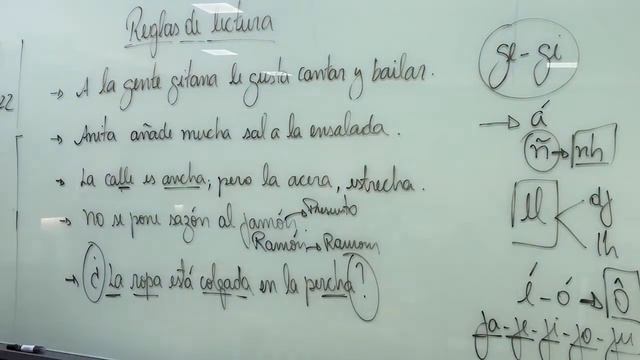 Reglas de lectura
→ A la gente gitana le gusta cantar y bailar.
→ Anita añade mucha sal a la ensalada.
→ La calle es ancha, pero la acera, estrecha.
→ no se pone sazón al jamón. → Presunto
Ramón → Ramom
→ ¿La ropa está colgada en la percha?
22
ge - gi
→ á
ñ → nh
ll
dj
lh
é - ó → ô
ja - je - ji - jo - ju